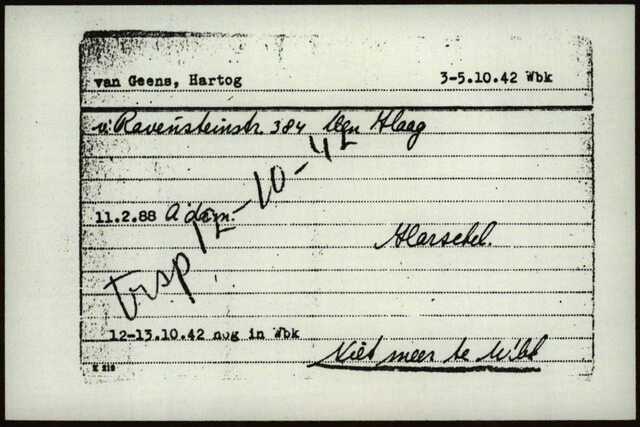 van Geens, Hartog 3-5.10.42 Wbk
v. Ravensteinstr. 384 Den Haag
11.2.88 A'dam.
trsp 12-10-42
Harschel.
12-13.10.42 nog in Wbk
Niet meer te Wbk
K 213